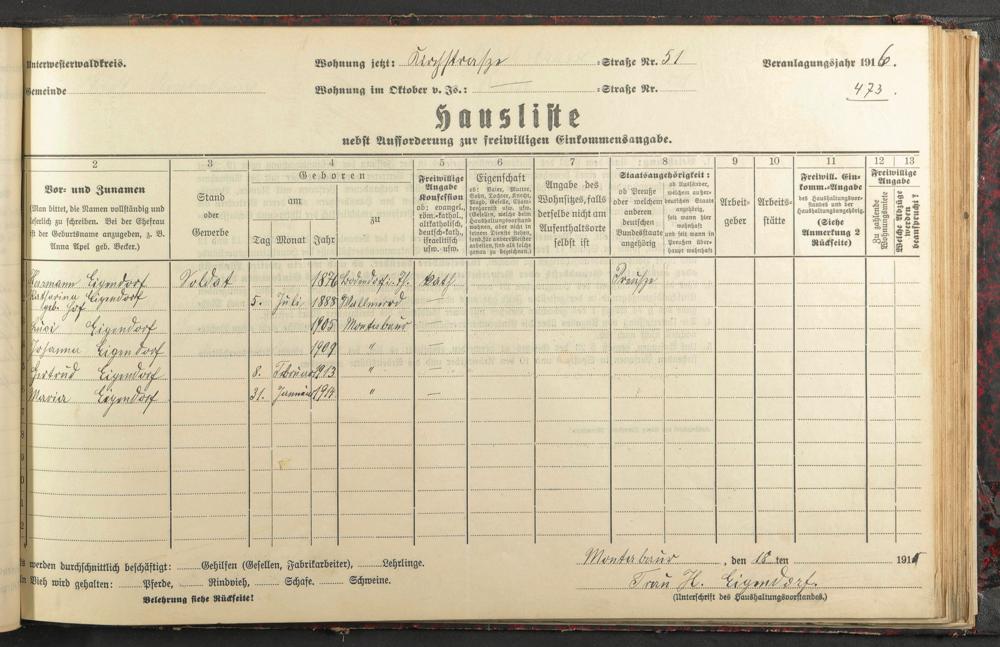 Unterwesterwaldkreis.
Wohnung jetzt: Kirchstrasze -Straße Nr. 51
Veranlagungsjahr 1916.
Gemeinde
Wohnung im Oktober v. Js.: — -Straße Nr.
473.
Hausliste
nebst Aufforderung zur freiwilligen Einkommensangabe.
2 3 4 5 6 7 8 9 10 11 12 13
Vor- und Zunamen
(Man bittet, die Namen vollständig und
leserlich zu schreiben. Bei der Ehefrau
ist der Geburtsname anzugeben, z. B.
Anna Apel geb. Becker.)
Stand
oder
Gewerbe
Geboren
am
Tag Monat Jahr
zu
Freiwillige
Angabe
Konfession
ob: evangel.,
röm.-kathol.,
altkatholisch,
deutsch-kath.,
israelitisch
usw. usw.
Eigenschaft
ob: Vater, Mutter,
Sohn, Tochter, Knecht,
Magd, Geselle, Cham-
bregarnist usw. usw.
(Gesellen, welche beim
Haushaltungsvorstand
wohnen, aber nicht in
seinen Diensten stehen,
sond. für andere Meister
arbeiten, sind als solche
genau zu bezeichnen.)
Angabe des
Wohnsitzes, falls
derselbe nicht am
Aufenthaltsorte
selbst ist
Staatsangehörigkeit:
ob Preuße
oder welchem
anderen
deutschen
Bundesstaate
angehörig
ob Ausländer,
welchem außer-
deutschen Staate
angehörig,
seit wann hier
wohnhaft
und seit wann in
Preußen über-
haupt wohnhaft
Arbeit-
geber
Arbeits-
stätte
Freiwill. Ein-
komm.-Angabe
des Haushaltungsvor-
standes und der
Haushaltungsangehörig.
(Siehe
Anmerkung 2
Rückseite)
Freiwillige
Angabe
Zu zahlende
Wohnungsmiete
Welche Abzüge
werden
beansprucht?
Hermann Eigendorf Soldat 1876 kath. Preusze
Katharina Eigendorf 5. Juli 1888 Wallmerod —
geb. Hof
Eigendorf 1905 Montabaur —
Johanna Eigendorf 1909 " —
Gertrud Eigendorf 8. Februar 1913 " —
Maria Eigendorf 31. Januar 1914 " —
Es werden durchschnittlich beschäftigt: Gehilfen (Gesellen, Fabrikarbeiter), Lehrlinge.
An Vieh wird gehalten: Pferde, Rindvieh, Schafe. Schweine.
Belehrung siehe Rückseite!
Montabaur, den 18 ten 1915
Frau H. Eigendorf.
(Unterschrift des Haushaltungsvorstandes.)